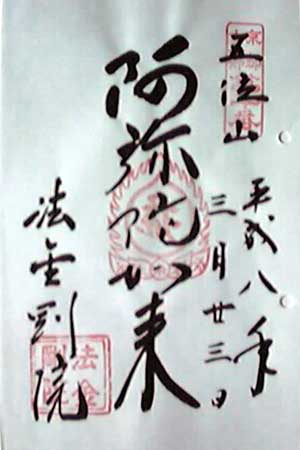 五位山
平成八年
三月廿三日
阿弥陀如来
法金剛院
法金
剛院